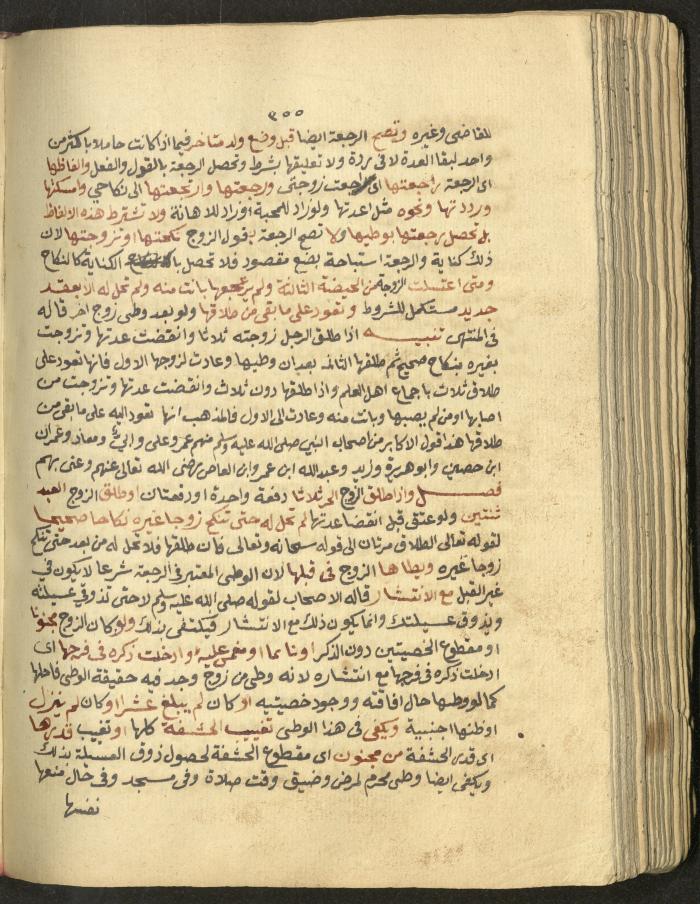 ٣٥٥
للقاضى وغيره وتصح الرجعة ايضا قبل وضع ولد متاخر فيما اذا كانت حاملا باكثر من
واحد لبقا العدة لا فى ردة ولا تعليقها بشرط وتحصل الرجعة بالقول والفعل والفاظها
اى الرجعة راجعتها اى راجعت زوجتى ورجعتها وارتجعتها الى نكاحي وامسكتها
ورددتها ونحوه مثل اعدتها ولو زاد للمحبة او زاد للاهانة ولا تشترط هذه الالفاظ
بل تحصل رجعتها بوطيها ولا تصح الرجعة بقول الزوج نكحتها او تزوجتها لان
ذلك كناية والرجعة استباحة بضع مقصود فلا تحصل بالكناية كالنكاح
ومتى اغتسلت الزوجة من الحيضة الثالثة ولم يرتجعها بانت منه ولم تحل له الا بعقد
جديد مستكمل للشروط وتعود على ما بقى من طلاقها ولو بعد وطى زوج اخر قاله
فى المنتهى تنبيه اذا طلق الرجل زوجته ثلاثا وانقضت عدتها وتزوجت
بغيره بنكاح صحيح ثم طلقها الثانى بعد ان وطيها وعادت لزوجها الاول فانها تعود على
طلاق ثلاث باجماع اهل العلم واذا طلقها دون ثلاث وانقضت عدتها وتزوجت من
اصابها او من لم يصبها وبانت منه وعادت الى الاول فالمذهب انها تعود اليه على ما بقى من
طلاقها هذا قول الاكابر من اصحاب النبى صلى الله عليه وسلم منهم عمر وعلى وابي ومعاذ وعمران
ابن حصين وابو هريرة وزيد وعبد الله ابن عمر وابن العاص رضى الله تعالى عنهم وعنى بهم
فصل واذا طلق الزوج الحر ثلاثا دفعة واحدة او دفعتان او طلق الزوج العبد
ثنتين ولو عتق قبل انقضا عدتها لم تحل له حتى تنكح زوجا غيره نكاحا صحيحا
لقوله تعالى الطلاق مرتان الى قوله سبحانه وتعالى فان طلقها فلا تحل له من بعد حتى تنكح
زوجا غيره ويطاها الزوج فى قبلها لان الوطى المعتبر فى الرجعة شرعا لا يكون فى
غير القبل مع الانتشار قاله الاصحاب لقوله صلى الله عليه وسلم لا حتى تذوقى عسيلته
ويذوق عسيلتك وانما يكون ذلك مع الانتشار فيكتفى بذلك ولو كان الزوج مجنونا
او مقطوع الخصيتين دون الذكر او نائما او مغمى عليه وادخلت ذكره فى فرجها اى
ادخلت ذكره فى فرجها مع انتشاره لانه وطى من زوج وجد فيه حقيقة الوطى فاحلها
كما لو وطيها حال افاقته ووجود خصيتيه او كان لم يبلغ عشرا او كان لم ينزل
او ظنها اجنبية ويكفى فى هذا الوطى تغييب الحشفة كلها او تغيب قدرها
اى قدر الحشفة من مجنون اى مقطوع الحشفة لحصول ذوق العسيلة بذلك
ويكفى ايضا وطى محرم لمرض وضيق وقت صلاة وفى مسجد وفى حال منعها
نفسها